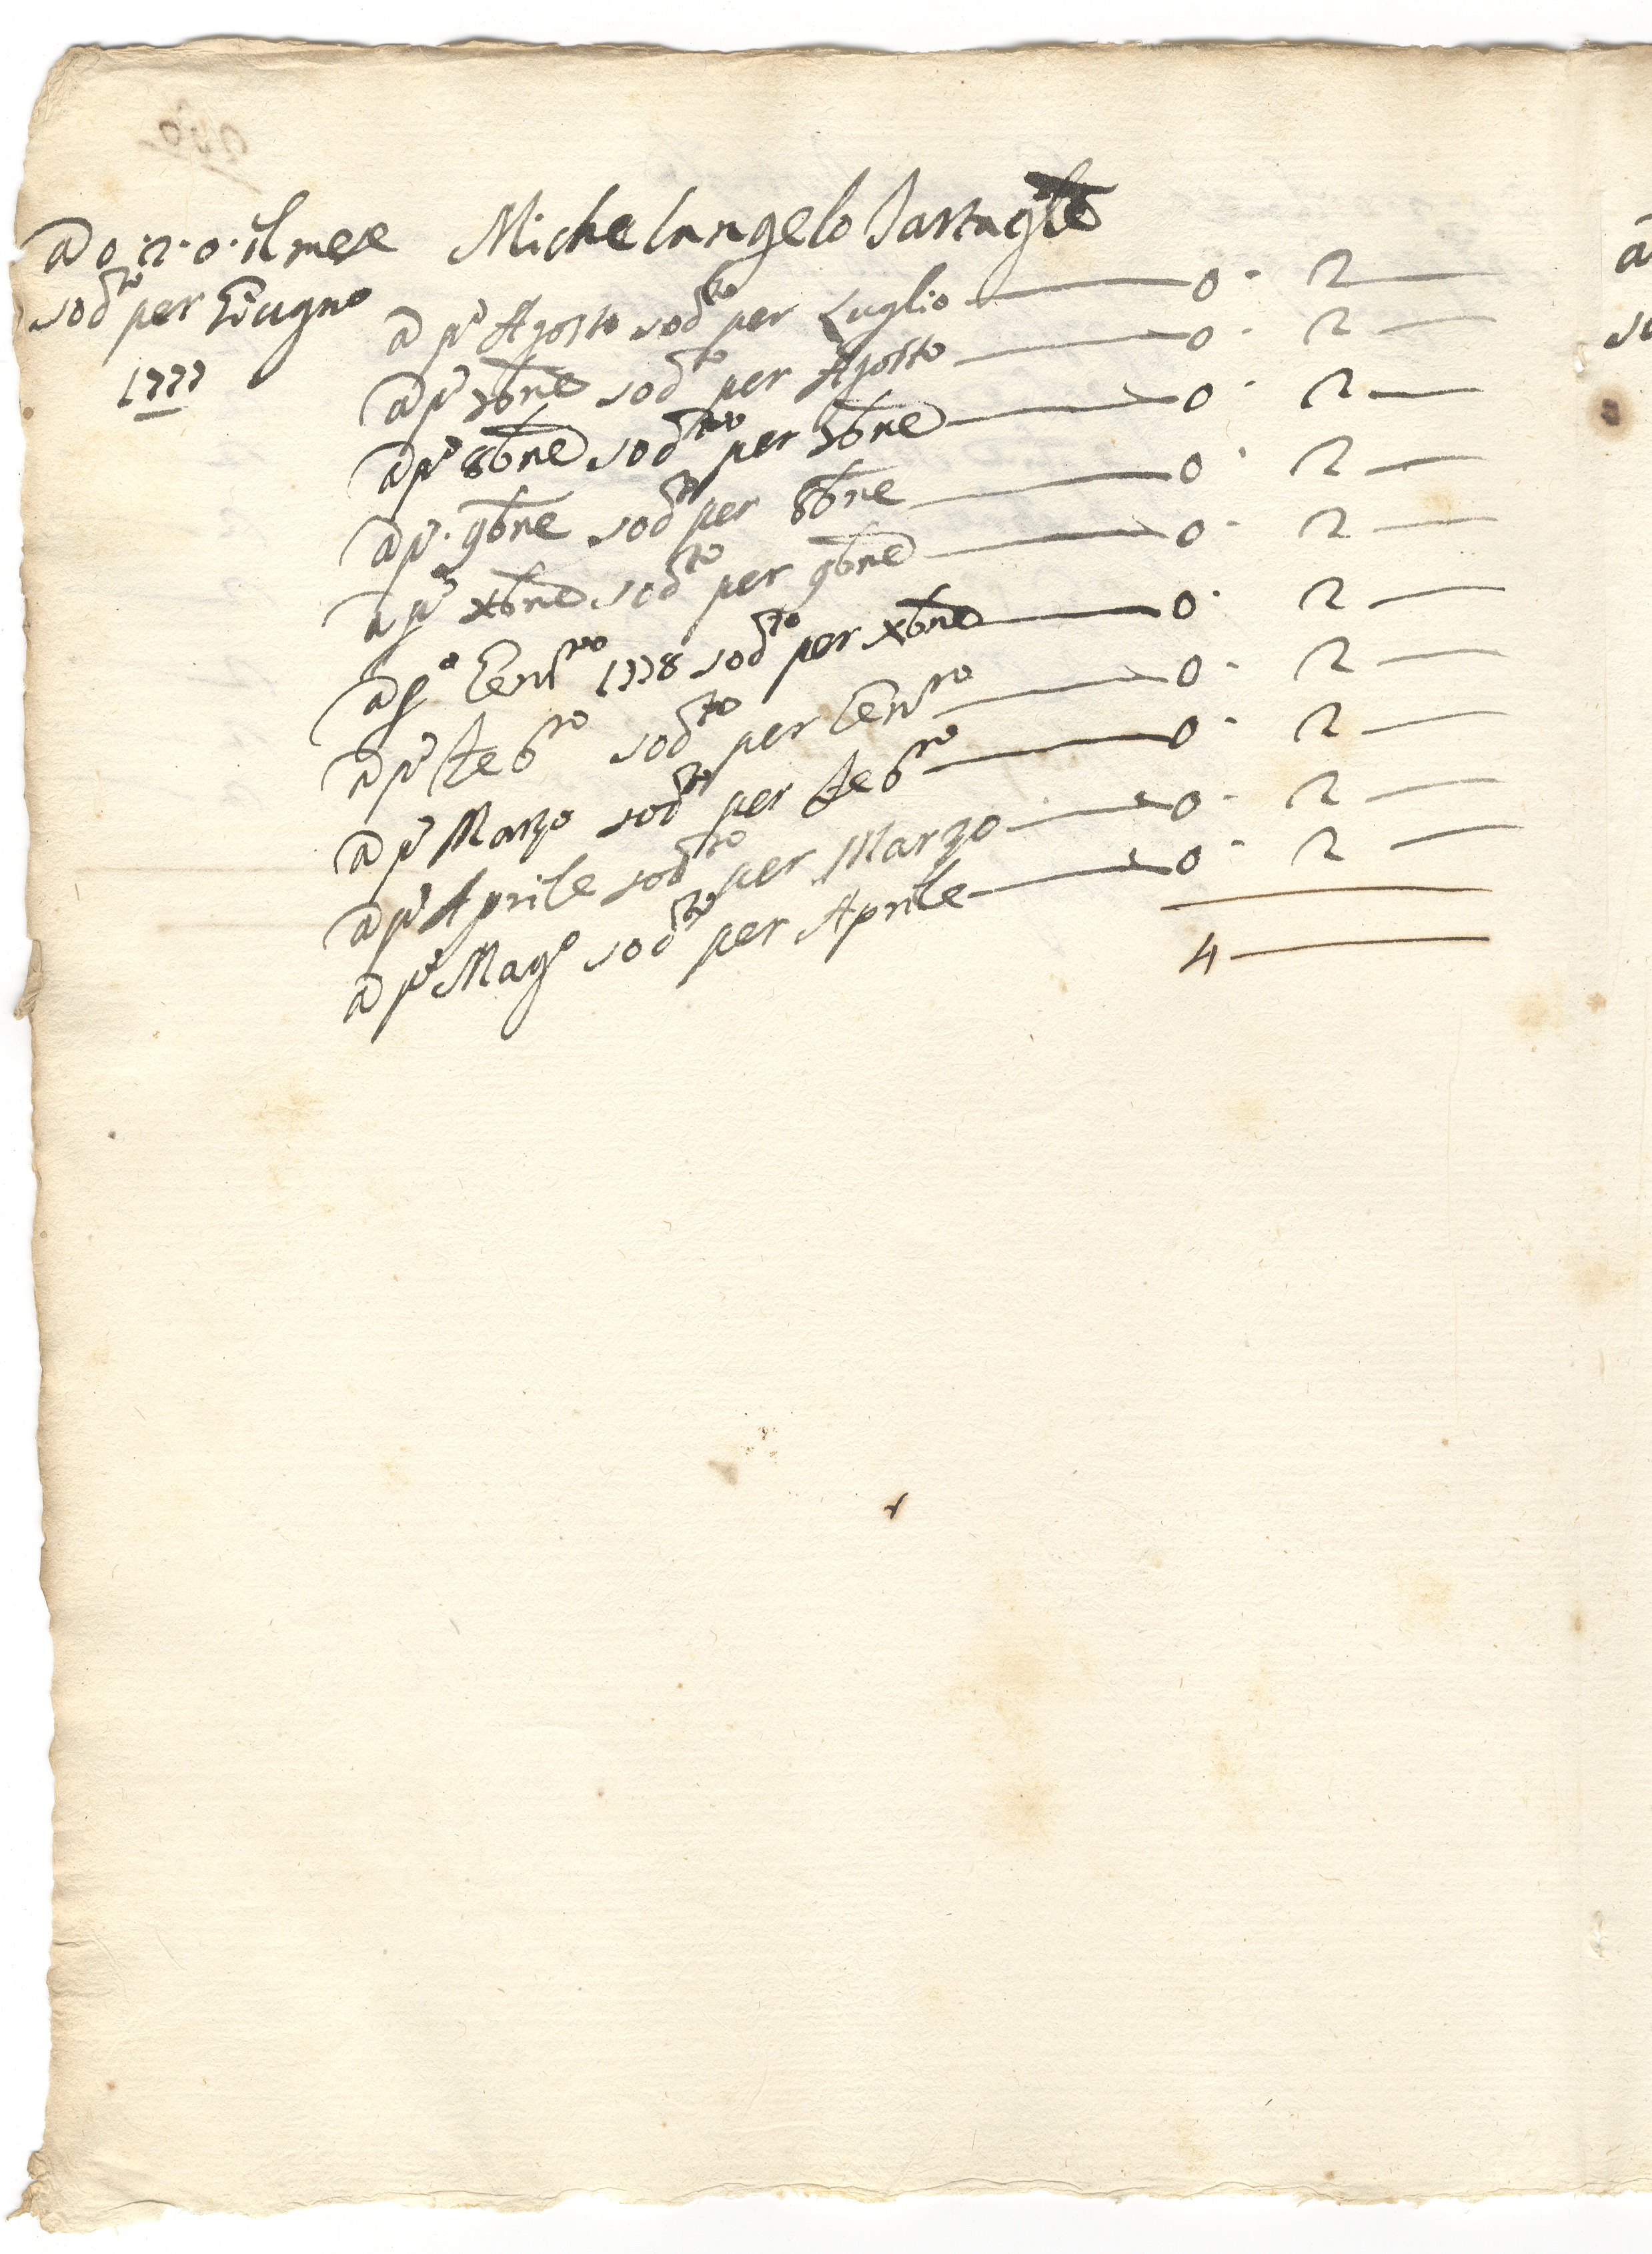 a 0 · 2 · 0 · il mese Michelangelo Tartaglia
sodto per Giugno
1777
a pº Agosto sodto per Luglio — 0 · 2 —
a pº 7bre sodto per Agosto — 0 · 2 —
a pº 8bre sodto per 7bre — 0 · 2 —
a pº 9bre sodto per 8bre — 0 · 2 —
a pº Xbre sodto per 9bre — 0 · 2 —
a pº Genro 1778 sodto per Xbre — 0 · 2 —
a pº Febro sodto per Genro — 0 · 2 —
a pº Marzo sodto per Febro — 0 · 2 —
a pº Aprile sodto per Marzo — 0 · 2 —
a pº Magº sodto per Aprile — 0 · 2 —
4 —